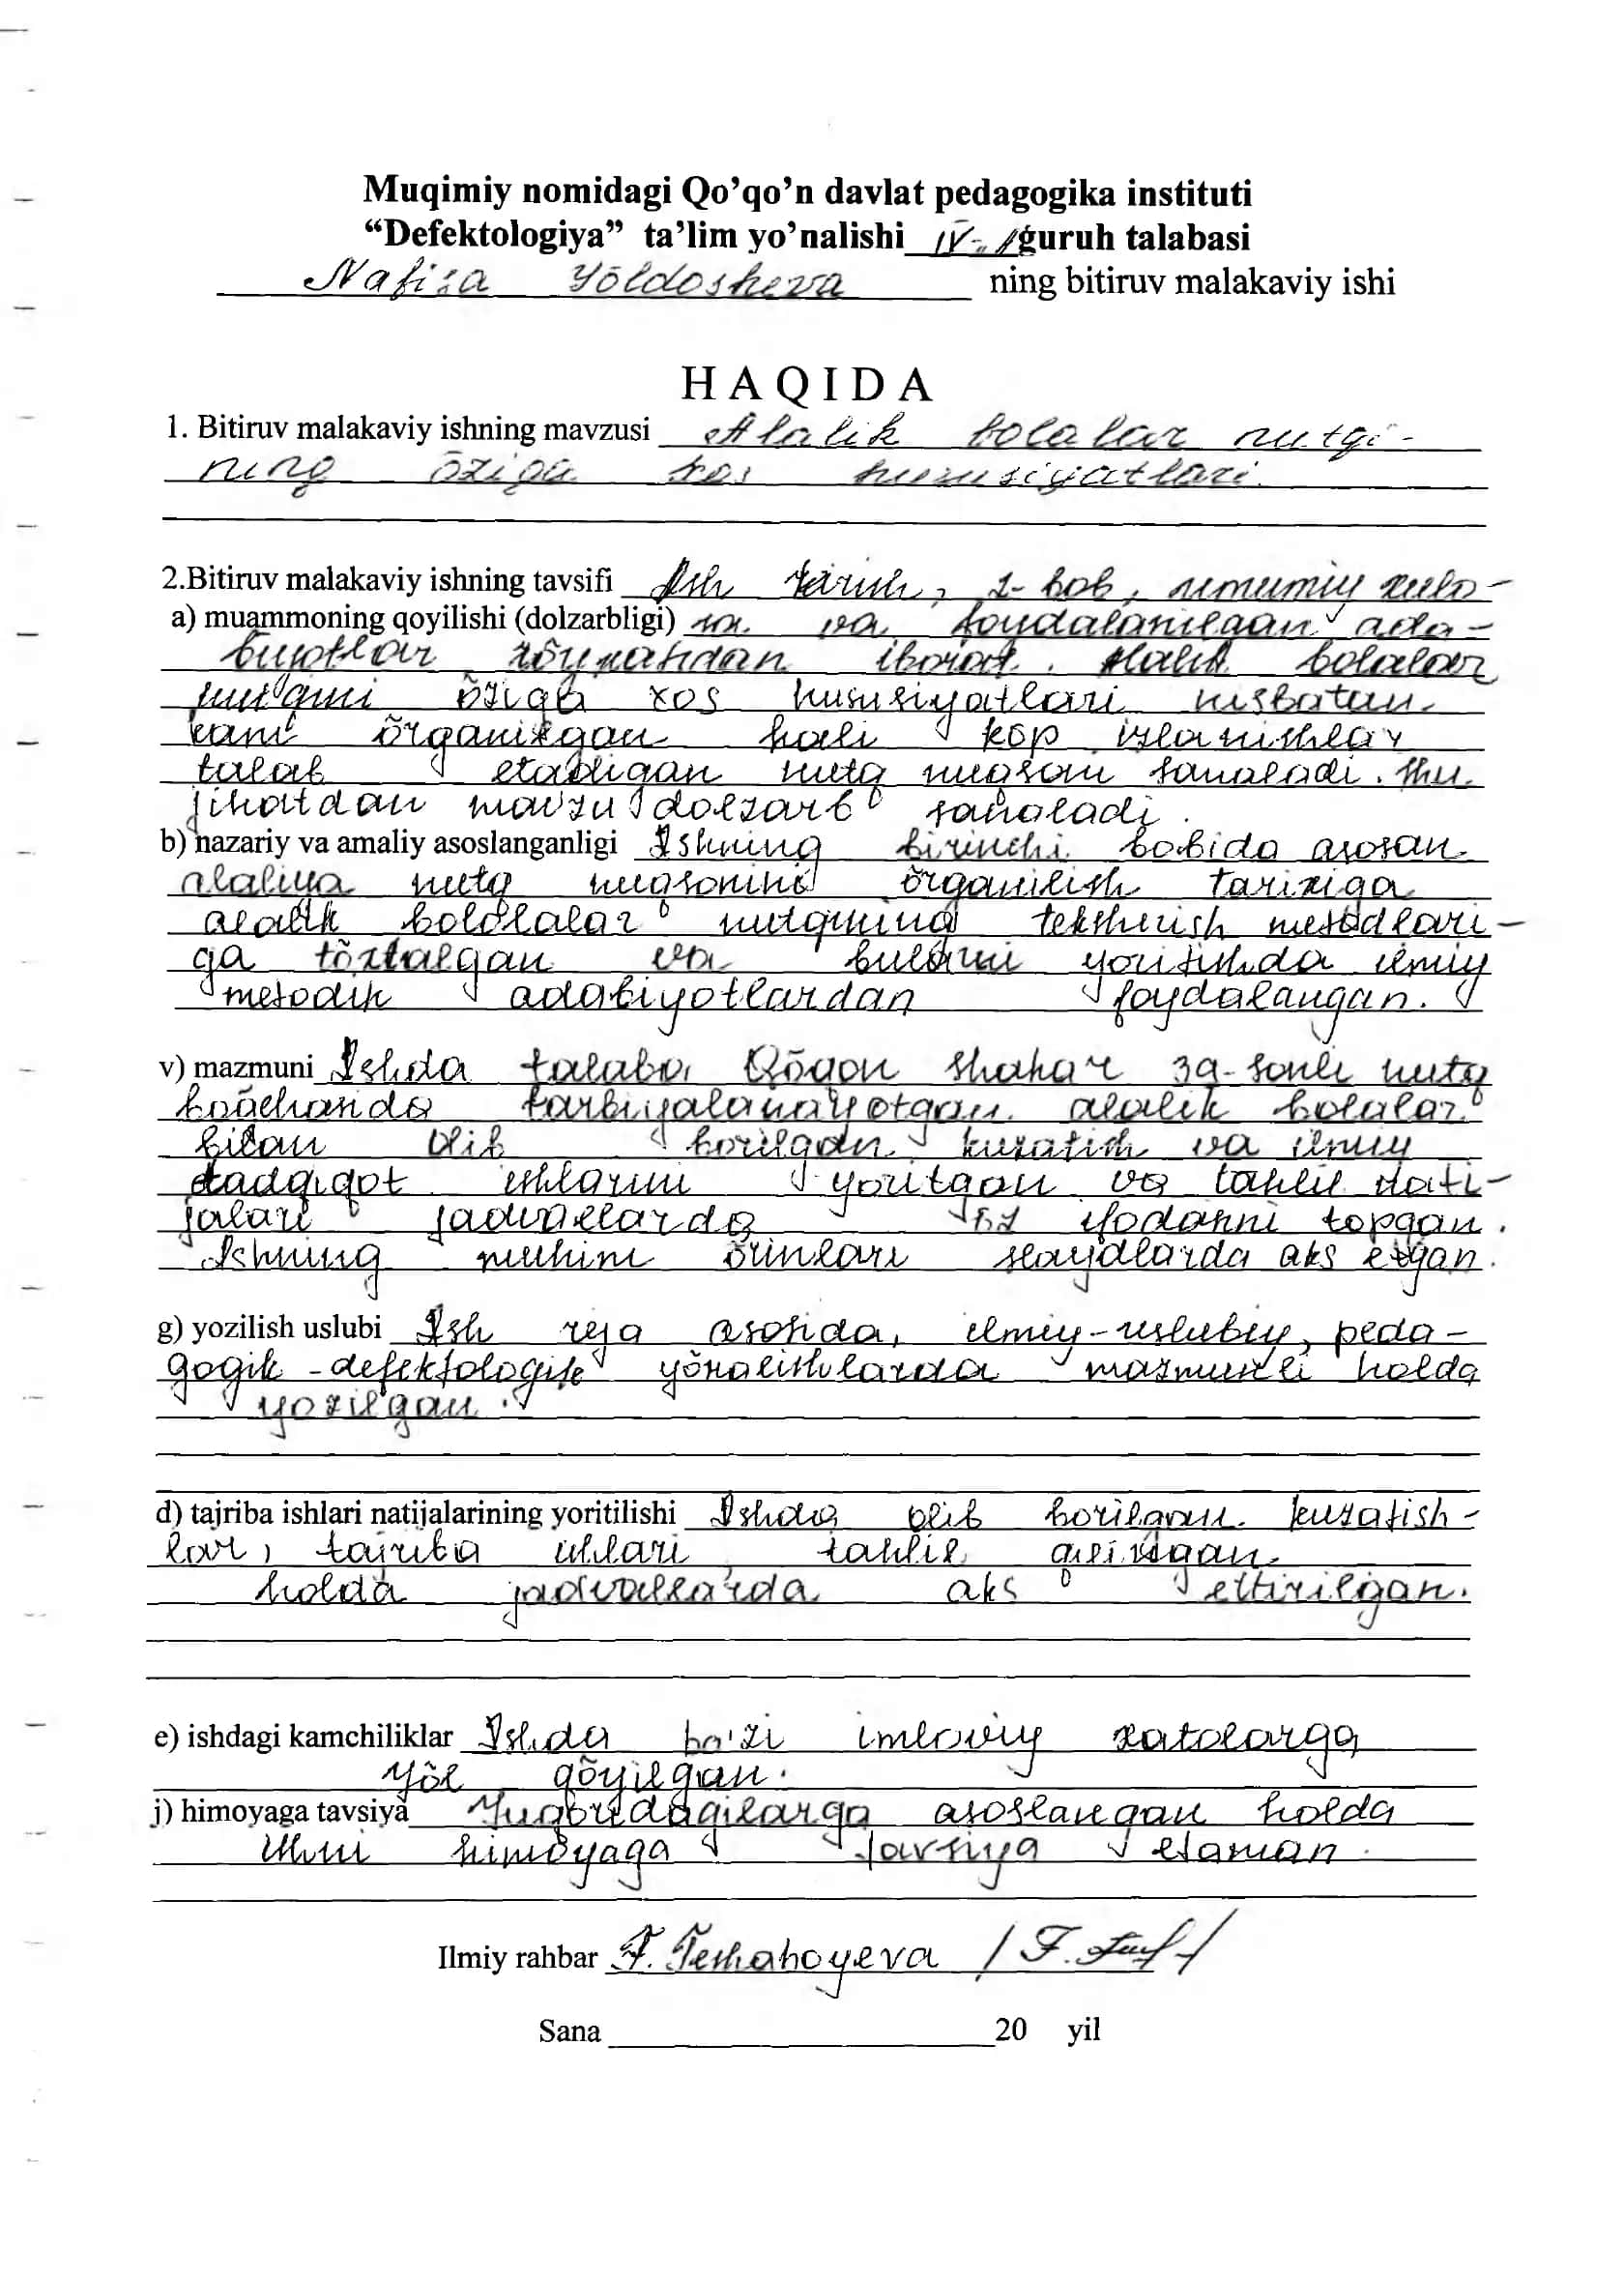 Muqimiy nomidagi Qo’qo’n davlat pedagogika instituti
“Defektologiya” ta’lim yo’nalishi IV- guruh talabasi
Nafisa Yõldosheva ning bitiruv malakaviy ishi
HAQIDA
1. Bitiruv malakaviy ishning mavzusi Alalik bolalar nutqi-
ning õziga xos hususiyatlari.
2.Bitiruv malakaviy ishning tavsifi Ish kirish, 2-bob, umumiy xulo-
a) muammoning qoyilishi (dolzarbligi) sa va foydalanilgan ada-
biyotlar rõyxatidan iborat. Alalik bolalar
nutqini õziga xos hususiyatlari nisbatan
kam õrganilgan hali kõp izlanishlar
talab etadigan nutq nuqsoni sanaladi. Shu
jihatdan mavzu dolzarb sanaladi.
b) nazariy va amaliy asoslanganligi Ishning birinchi bobida asosan
alaliya nutq nuqsonini õrganilish tarixiga
alalik bololalar nutqining tekshirish metodlari-
ga tõxtalgan va bularni yoritishda ilmiy
metodik adabiyotlardan foydalangan.
v) mazmuni Ishda talaba Qõqon shahar 39-sonli nutq
boğchanda tarbiyalanayotgan alalik bolalar
bilan olib borilgan kuzatish va ilmiy
tadqiqot ishlarini yoritgan va tahlil nati-
jalari jadvallarda õz ifodanni topgan.
Ishning muhim õrinlari slaydlarda aks etgan.
g) yozilish uslubi Ish reja asosida, ilmiy-uslubiy, peda-
gogik-defektologik yõnalishlarda mazmunli holda
yozilgan.
d) tajriba ishlari natijalarining yoritilishi Ishda olib borilgan kuzatish-
lar, tajriba ishlari tahlil qilingan
holda jadvallarda aks ettirilgan.
e) ishdagi kamchiliklar Ishda ba'zi imloviy xatolarga
yõl qõyilgan.
j) himoyaga tavsiya Yuqoridagilarga asoslangan holda
ishni himoyaga tavsiya etaman.
Ilmiy rahbar F. Teshaboyeva / F.
Sana 20 yil